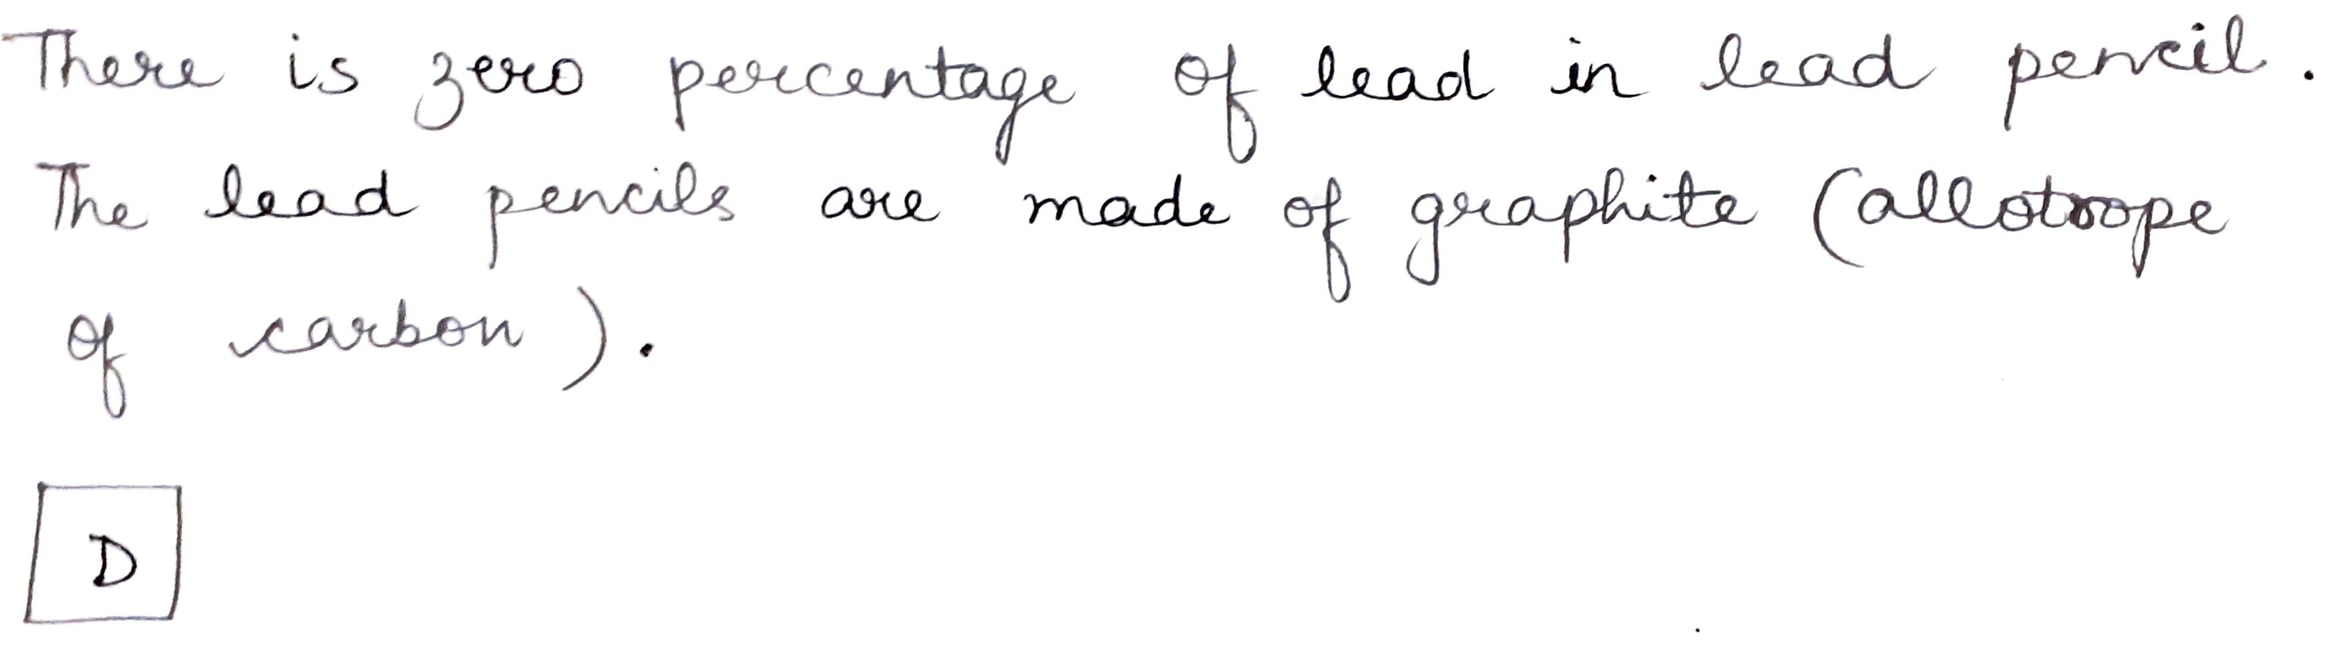 There is zero percentage of lead in lead pencil.
The lead pencils are made of graphite (allotrope
of carbon).
D